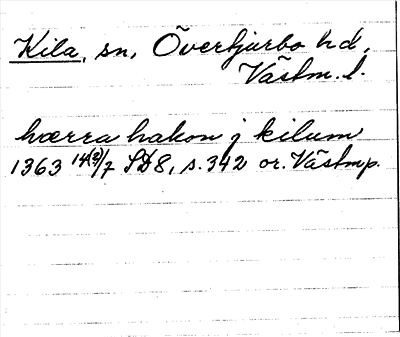 Kila, sn, Övertjurbo hd,
Västm. l.
hærra hakon j kilum
1363 14(?)/7 SD8, s. 342 or. Västmp.